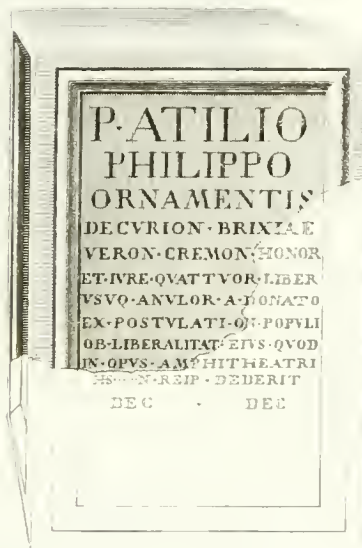 P·ATILIO
PHILIPPO
ORNAMENTIS
DECVRION·BRIXIAE
VERON·CREMON·HONOR
ET·IVRE·QVATTVOR·LIBER
VSVQ·ANVLOR·A·DONATO
EX·POSTVLATI·ON·POPVLI
OB·LIBERALITAT·EIVS·QVOD
IN·OPVS·AMPHITHEATRI
HS····N·REIP·DEDERIT
DEC · DEC